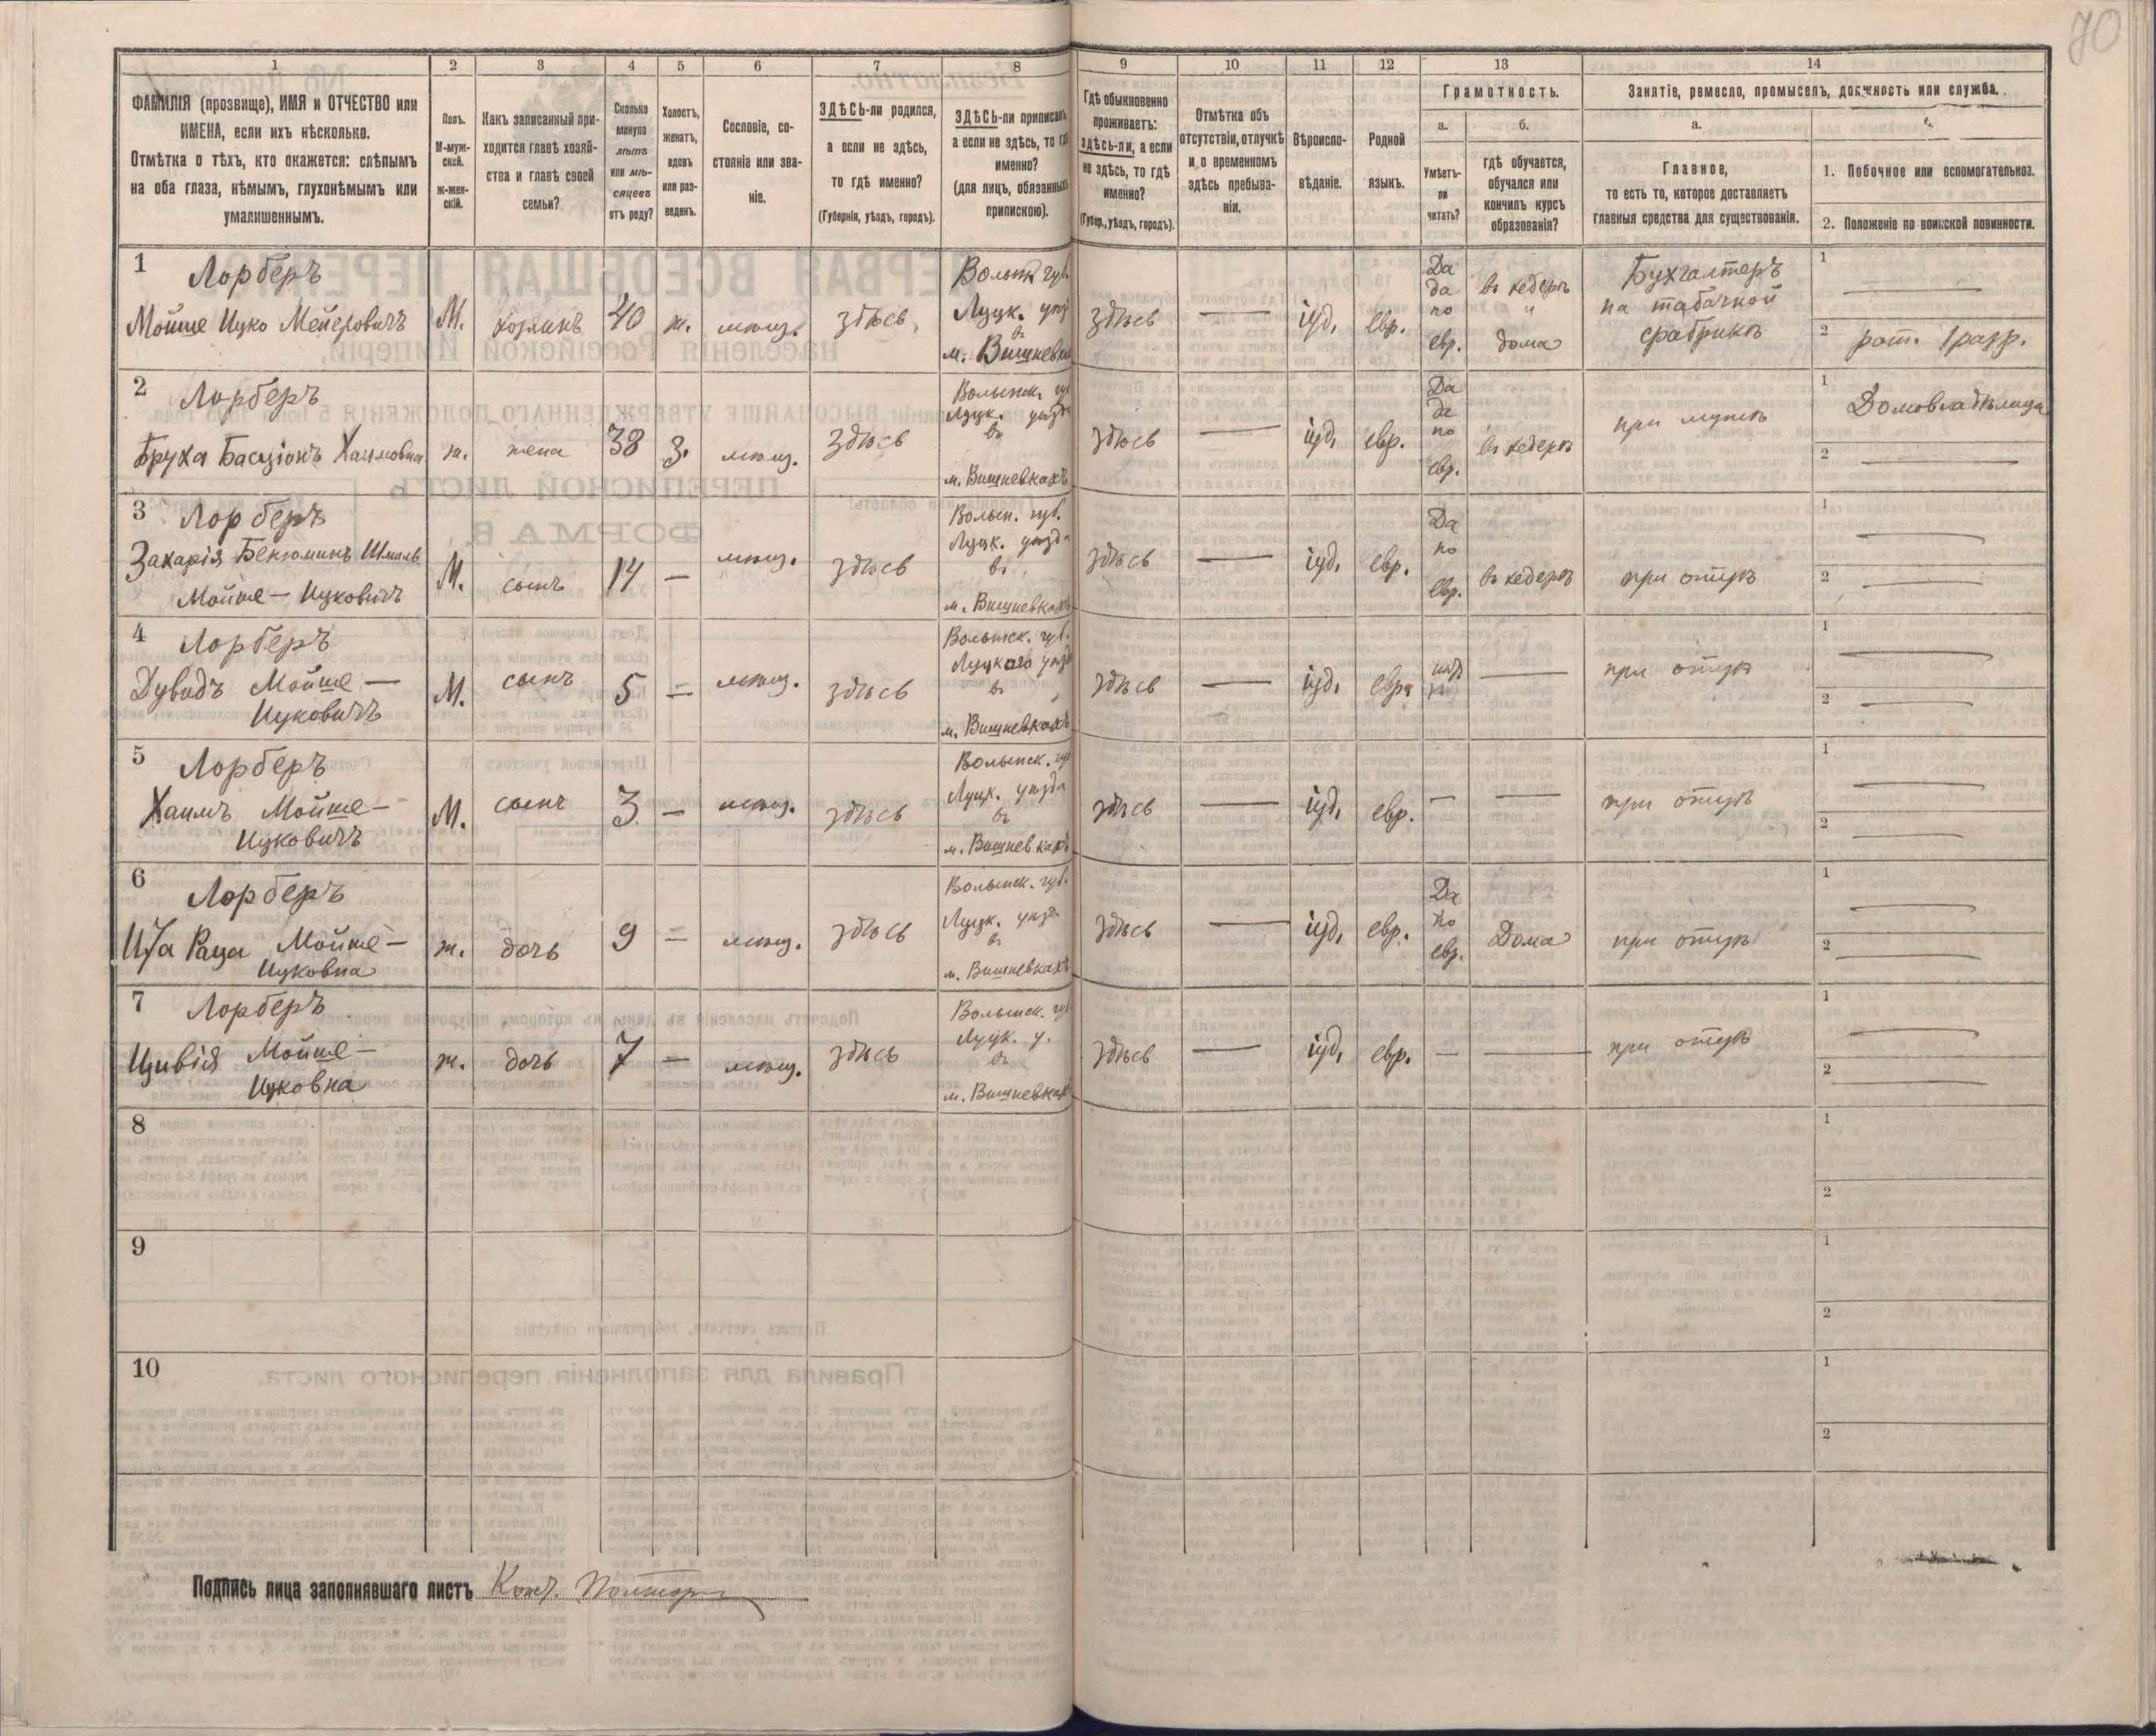 70
1
2
3
4
5
6
7
8
9
10
11
12
13
14
ФАМИЛІЯ (прозвище), ИМЯ и ОТЧЕСТВО или
ИМЕНА, если ихъ нѣсколько.
Отмѣтка о тѣхъ, кто окажется: слѣпымъ
на оба глаза, нѣмымъ, глухонѣмымъ или
умалишеннымъ.
Полъ.
М-муж-
ской.
ж-жен-
скій.
Какъ записанный при-
ходится главѣ хозяй-
ства и главѣ своей
семьи?
Сколько
минуло
лѣтъ
или мѣ-
сяцевъ
отъ роду?
Холостъ,
женатъ,
вдовъ
или раз-
веденъ.
Сословіе, со-
стояніе или зва-
ніе.
ЗДѢСЬ-ли родился,
а если не здѣсь,
то гдѣ именно?
(Губернія, уѣздъ, городъ).
ЗДѢСЬ-ли приписанъ,
а если не здѣсь, то гдѣ
именно?
(для лицъ, обязанныхъ
припискою).
Гдѣ обыкновенно
проживаетъ:
здѣсь-ли, а если
не здѣсь, то гдѣ
именно?
(Губер., уѣздъ, городъ).
Отмѣтка объ
отсутствіи, отлучкѣ
и о временномъ
здѣсь пребыва-
ніи.
Вѣроиспо-
вѣданіе.
Родной
языкъ.
Грамотность.
а.
Умѣетъ-
ли
читать?
б.
гдѣ обучается,
обучался или
кончилъ курсъ
образованія?
Занятіе, ремесло, промыселъ, должность или служба.
а.
Главное,
то есть то, которое доставляетъ
главныя средства для существованія.
1. Побочное или вспомогательное.
2. Положеніе по воинской повинности.
1
Лорберъ
Мойше Ицко Мейеровичъ
М.
хозяинъ
40
ж.
мѣщ.
здѣсь
Волын. губ.
Луцк. уѣзд
въ
м. Вишневка
здѣсь
—
іуд.
евр.
Да
да
по
евр.
въ хедерѣ
"
дома
Бухгалтеръ
на табачной
фабрикѣ
1
—
2
рат. 1 разр.
2
Лорберъ
Бруха Басціонъ Хаимовна
ж.
жена
38
З.
мѣщ.
здѣсь
Волынск. губ
Луцк. уѣзда
въ
м. Вишневкахъ
здѣсь
—
іуд.
евр.
Да
да
по
евр.
въ хедерѣ
при мужѣ
1
Домовладѣлица
2
—
3
Лорберъ
Захарія Бенюминъ Шмилъ
Мойше - Ицковичъ
М.
сынъ
14
—
мѣщ.
здѣсь
Волын. губ.
Луцк. уѣзда
въ
м. Вишневкахъ
здѣсь
—
іуд.
евр.
Да
по
евр.
въ хедерѣ
при отцѣ
1
—
2
—
4
Лорберъ
Дувидъ Мойше —
Ицковичъ
М.
сынъ
5
—
мѣщ.
здѣсь
Волынск. губ.
Луцкаго уѣзд
въ
м. Вишневкахъ
здѣсь
—
іуд.
евр.
—
при отцѣ
1
—
2
—
5
Лорберъ
Хаимъ Мойше -
Ицковичъ
М.
сынъ
3
—
мѣщ.
здѣсь
Волынск. губ
Луцк. уѣзда
въ
м. Вишневкахъ
здѣсь
—
іуд.
евр.
—
—
при отцѣ
1
—
2
—
6
Лорберъ
Ита Раца Мойше -
Ицковна
ж.
дочь
9
—
мѣщ.
здѣсь
Волынск. губ.
Луцк. уѣзд.
въ
м. Вишневкахъ
здѣсь
—
іуд.
евр.
Да
по
евр.
Дома
при отцѣ
1
—
2
—
7
Лорберъ
Цивія Мойше -
Ицковна
ж.
дочь
7
—
мѣщ.
здѣсь
Волынск. губ
Луцк. у.
въ
м. Вишневкахъ
здѣсь
—
іуд.
евр.
—
—
при отцѣ
1
—
2
—
8
1
2
9
1
2
10
1
2
Подпись лица заполнявшаго листъ